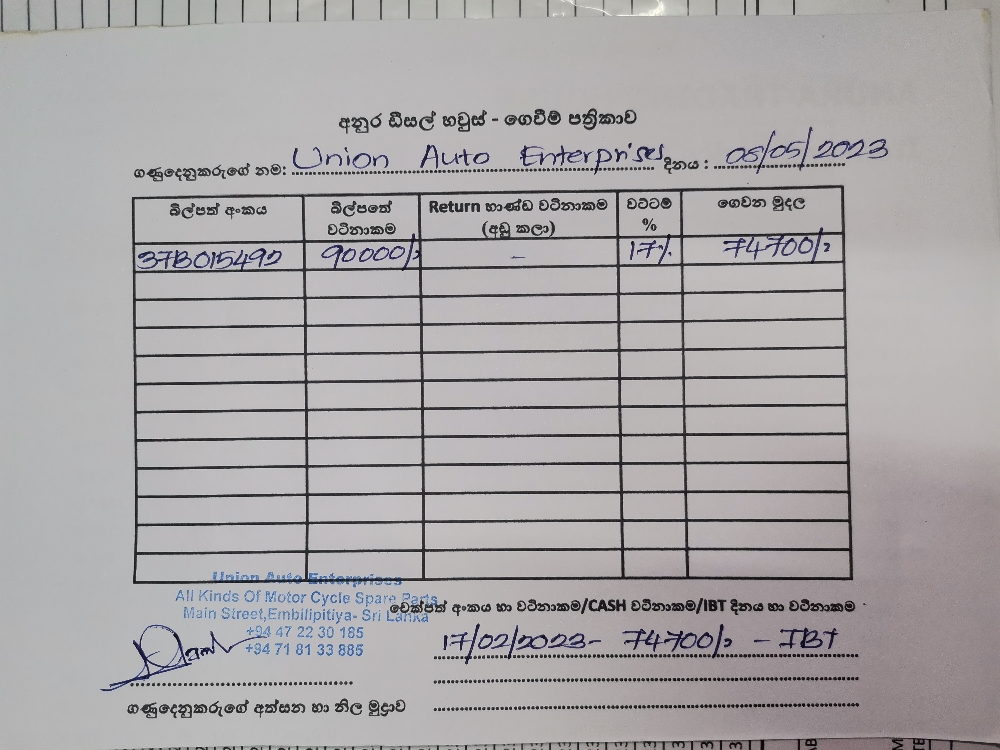 අනුර ඩීසල් හවුස් - ගෙවීම් පත්‍රිකාව
ගණුදෙනුකරුගේ නම: Union Auto Enterprises දිනය : 08/05/2023
බිල්පත් අංකය බිල්පතේ වටිනාකම Return භාණ්ඩ වටිනාකම (අඩු කලා) වට්ටම් % ගෙවන මුදල
37B015492 90000/= - 17% 74700/=
Union Auto Enterprises
All Kinds Of Motor Cycle Spare Parts
Main Street,Embilipitiya- Sri Lanka
+94 47 22 30 185
+94 71 81 33 885
චෙක්පත් අංකය හා වටිනාකම/CASH වටිනාකම/IBT දිනය හා වටිනාකම
17/02/2023 - 74700/= - IBT
ගණුදෙනුකරුගේ අත්සන හා නිල මුද්‍රාව